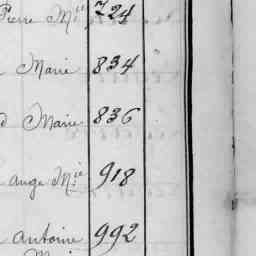 Pierre Mie 724
Marie 834
d Marie 836
ange Mie 918
antoine 992